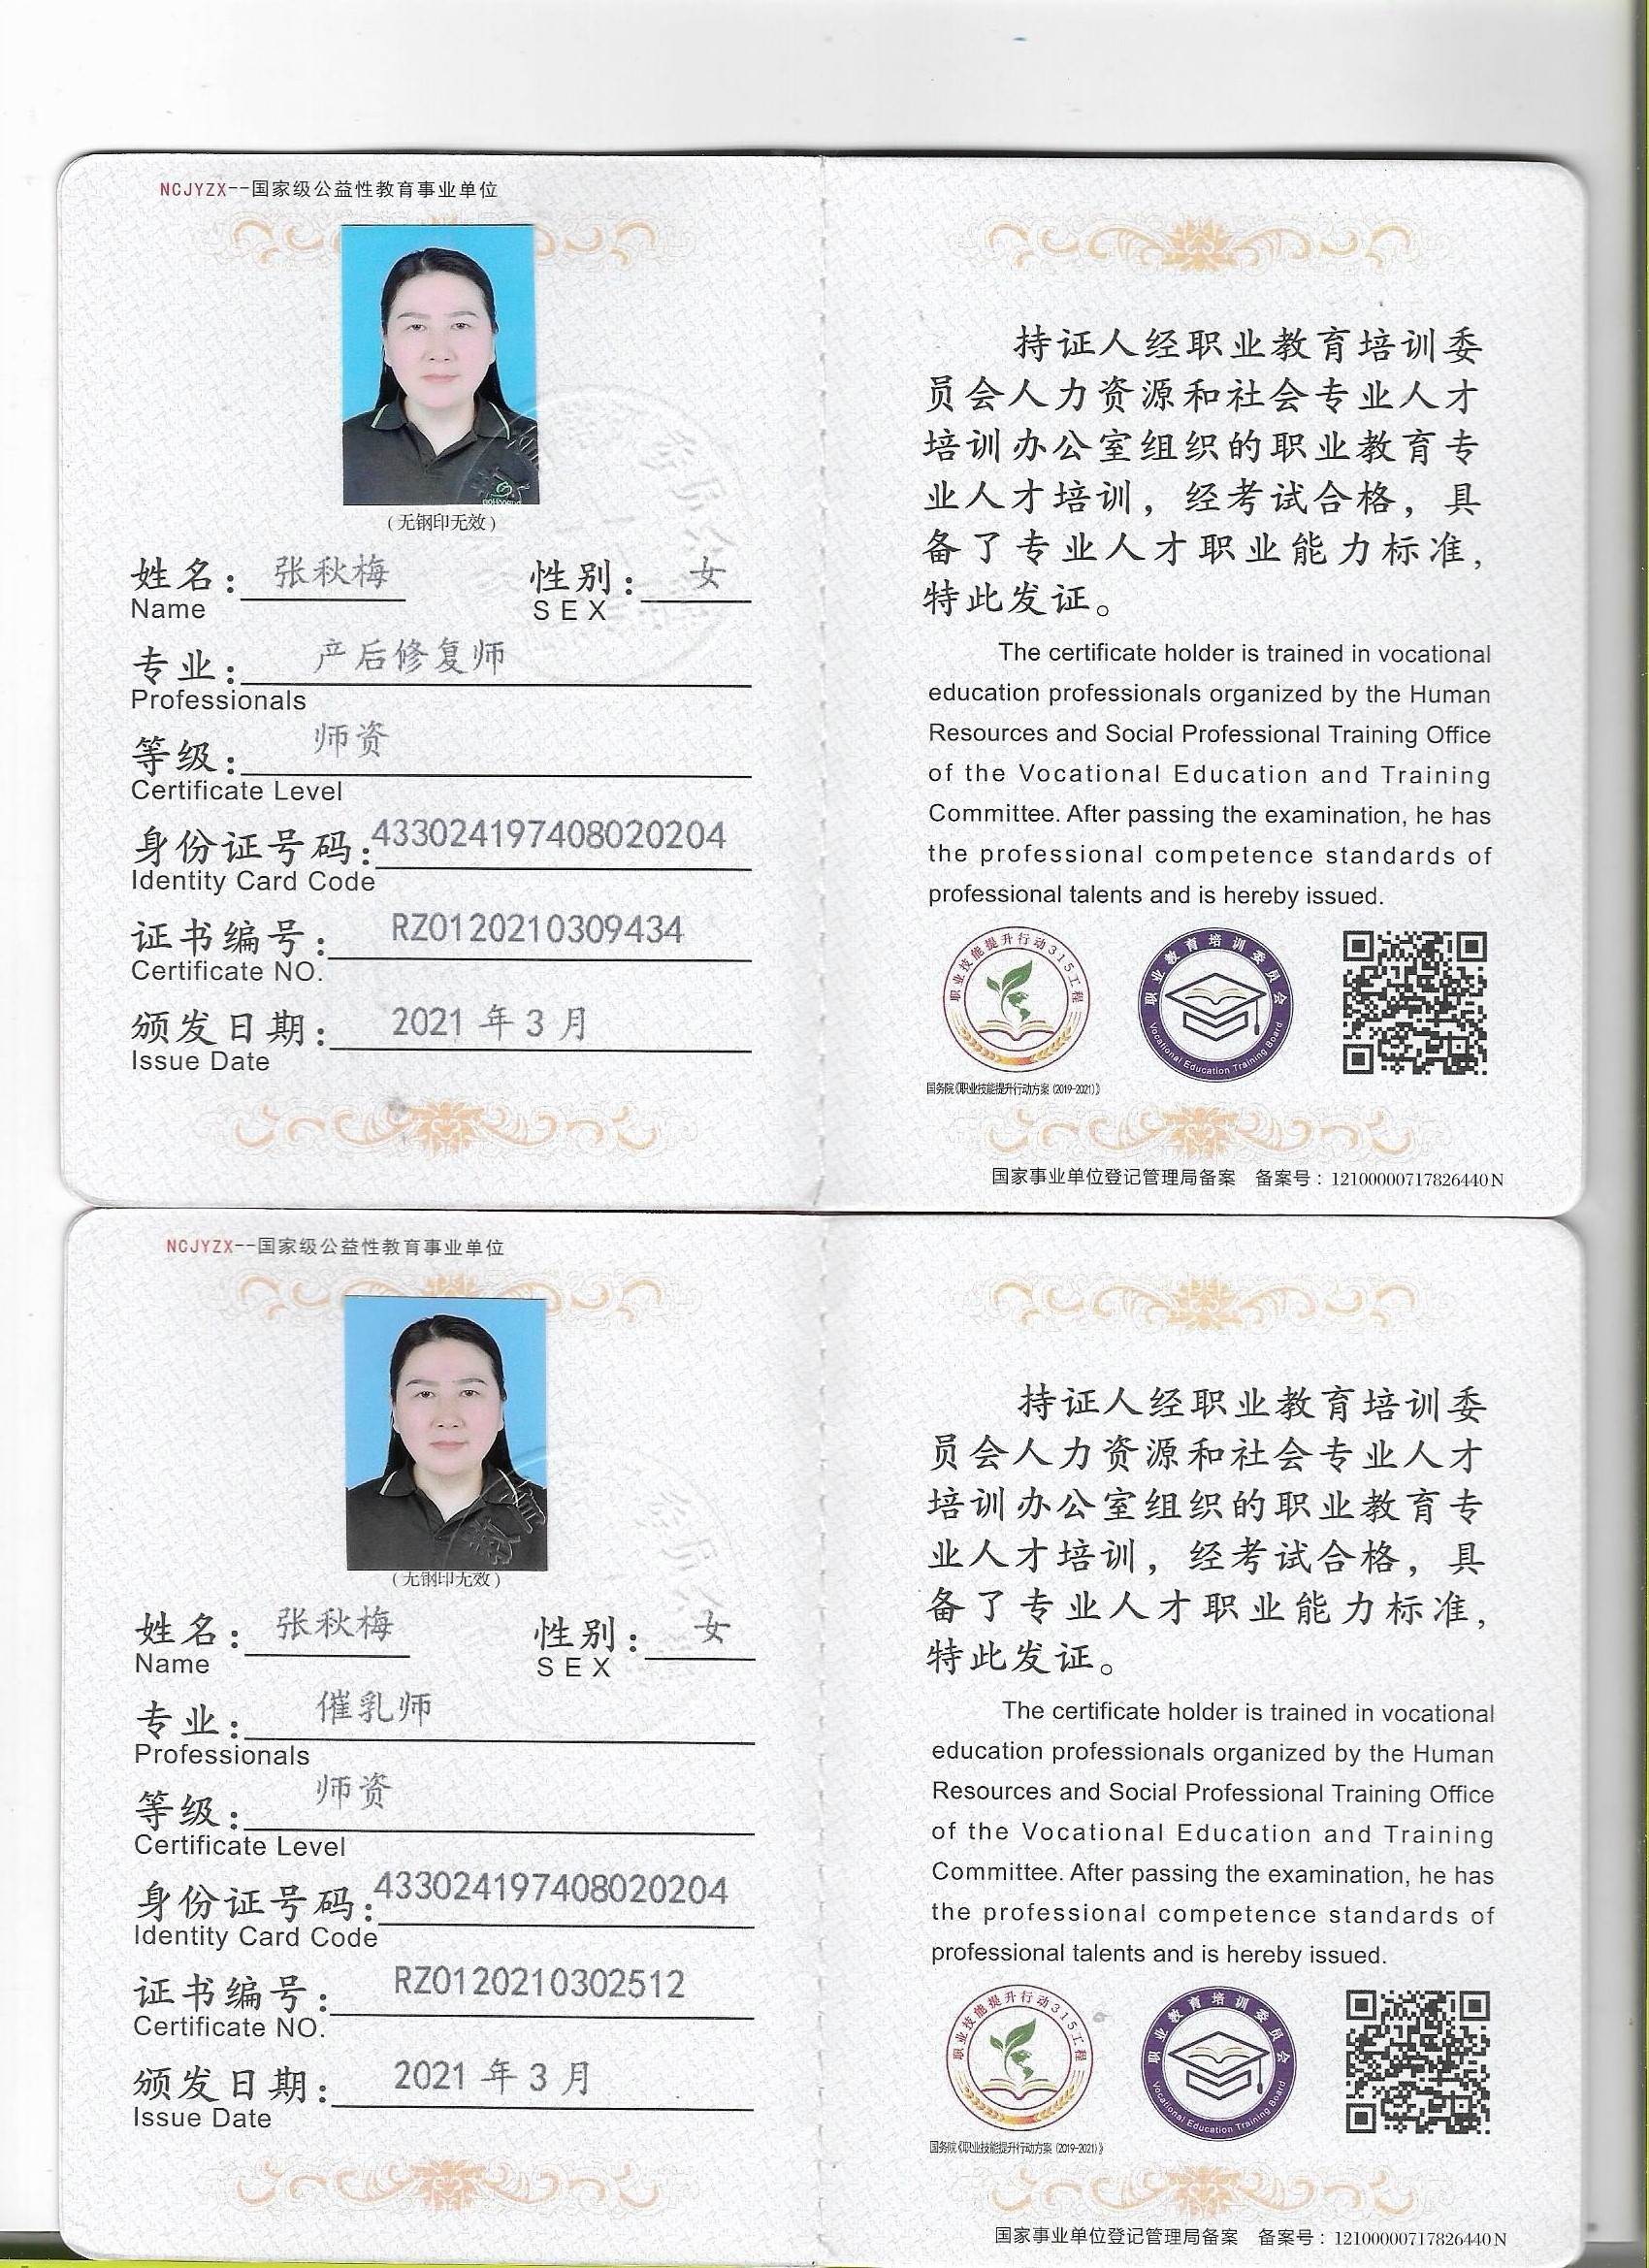 NCJYZX--国家级公益性教育事业单位
(无钢印无效)
姓名: 张秋梅 性别: 女
Name SEX
专业: 产后修复师
Professionals
等级: 师资
Certificate Level
身份证号码: 433024197408020204
Identity Card Code
证书编号: RZ0120210309434
Certificate NO.
颁发日期: 2021 年 3 月
Issue Date
持证人经职业教育培训委
员会人力资源和社会专业人才
培训办公室组织的职业教育专
业人才培训，经考试合格，具
备了专业人才职业能力标准，
特此发证。
The certificate holder is trained in vocational
education professionals organized by the Human
Resources and Social Professional Training Office
of the Vocational Education and Training
Committee. After passing the examination, he has
the professional competence standards of
professional talents and is hereby issued.
职业技能提升行动315工程
职业教育培训委员会
Vocational Education Training Board
国务院《职业技能提升行动方案 (2019-2021)》
国家事业单位登记管理局备案 备案号：12100000717826440N
NCJYZX--国家级公益性教育事业单位
(无钢印无效)
姓名: 张秋梅 性别: 女
Name SEX
专业: 催乳师
Professionals
等级: 师资
Certificate Level
身份证号码: 433024197408020204
Identity Card Code
证书编号: RZ0120210302512
Certificate NO.
颁发日期: 2021 年 3 月
Issue Date
持证人经职业教育培训委
员会人力资源和社会专业人才
培训办公室组织的职业教育专
业人才培训，经考试合格，具
备了专业人才职业能力标准，
特此发证。
The certificate holder is trained in vocational
education professionals organized by the Human
Resources and Social Professional Training Office
of the Vocational Education and Training
Committee. After passing the examination, he has
the professional competence standards of
professional talents and is hereby issued.
职业技能提升行动315工程
职业教育培训委员会
Vocational Education Training Board
国务院《职业技能提升行动方案 (2019-2021)》
国家事业单位登记管理局备案 备案号：12100000717826440N